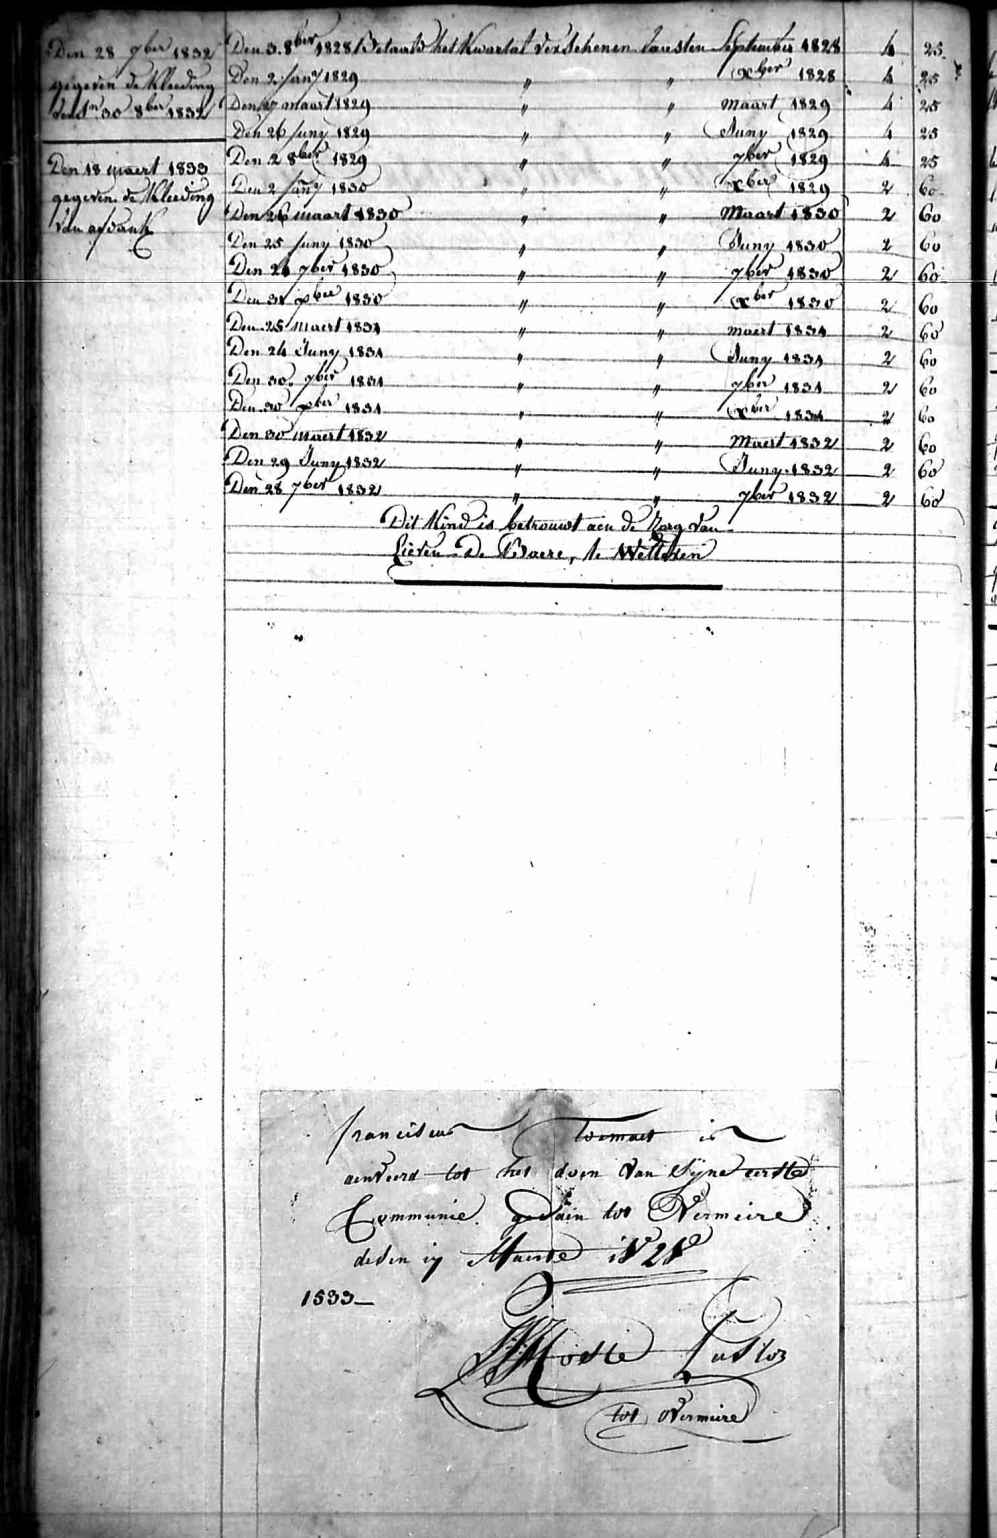 Den 28 7ber 1832
gegeven de kleeding
den 30 8ber 1832
Den 18 maert 1833
gegeven de kleeding
Van afdank
Den 3. 8ber 1828 Betaald het kwartal verschenen laesten September 1828 4 25
Den 2 Jany 1829 " " xber 1828 4 25
Den 27 maart 1829 " " Maart 1829 4 25
Den 26 Juny 1829 " " Juny 1829 4 25
Den 2 8ber 1829 " " 7ber 1829 4 25
Den 2 Jany 1830 " " xber 1829 2 60
Den 26 maart 1830 " " Maart 1830 2 60
Den 25 Juny 1830 " " Juny 1830 2 60
Den 24 7ber 1830 " " 7ber 1830 2 60
Den 31 xber 1830 " " xber 1830 2 60
Den 25 maert 1831 " " maert 1831 2 60
Den 24 Juny 1831 " " Juny 1831 2 60
Den 30. 7ber 1831 " " 7ber 1831 2 60
Den 30 xber 1831 " " xber 1831 2 60
Den 30 maert 1832 " " Maert 1832 2 60
Den 29 Juny 1832 " " Juny 1832 2 60
Den 28 7ber 1832 " " 7ber 1832 2 60
Dit Kind is betrouwt aen de Zorg van
Lieven De Baere, te Wetteren
franciscus is
aenveerd tot het doen van Syne eerste
Communie gedain tot Overmeire
desen 17 Maerte 1828
1533
Hoste Pastor
tot Overmeire